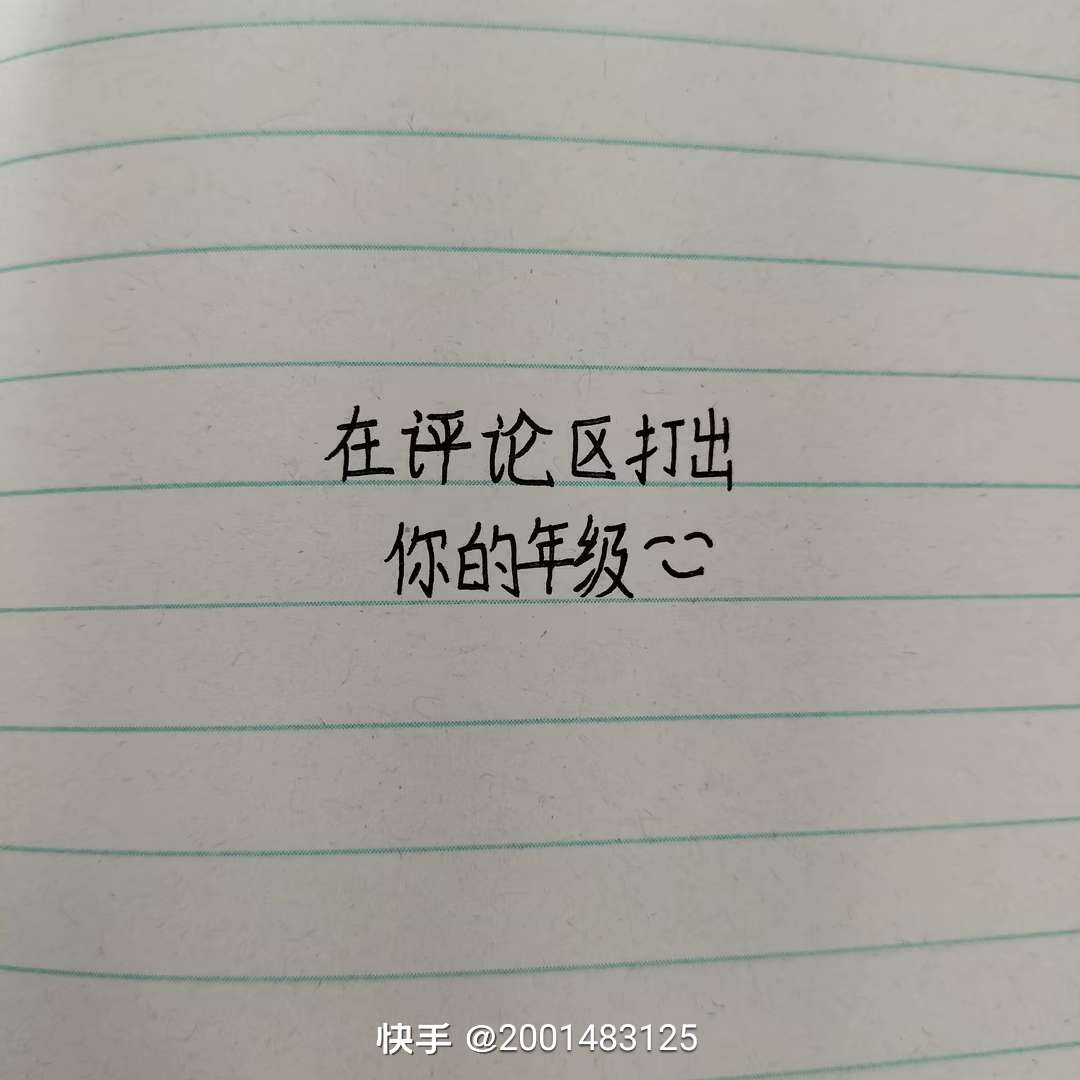 在评论区打出
你的年级
快手 @2001483125